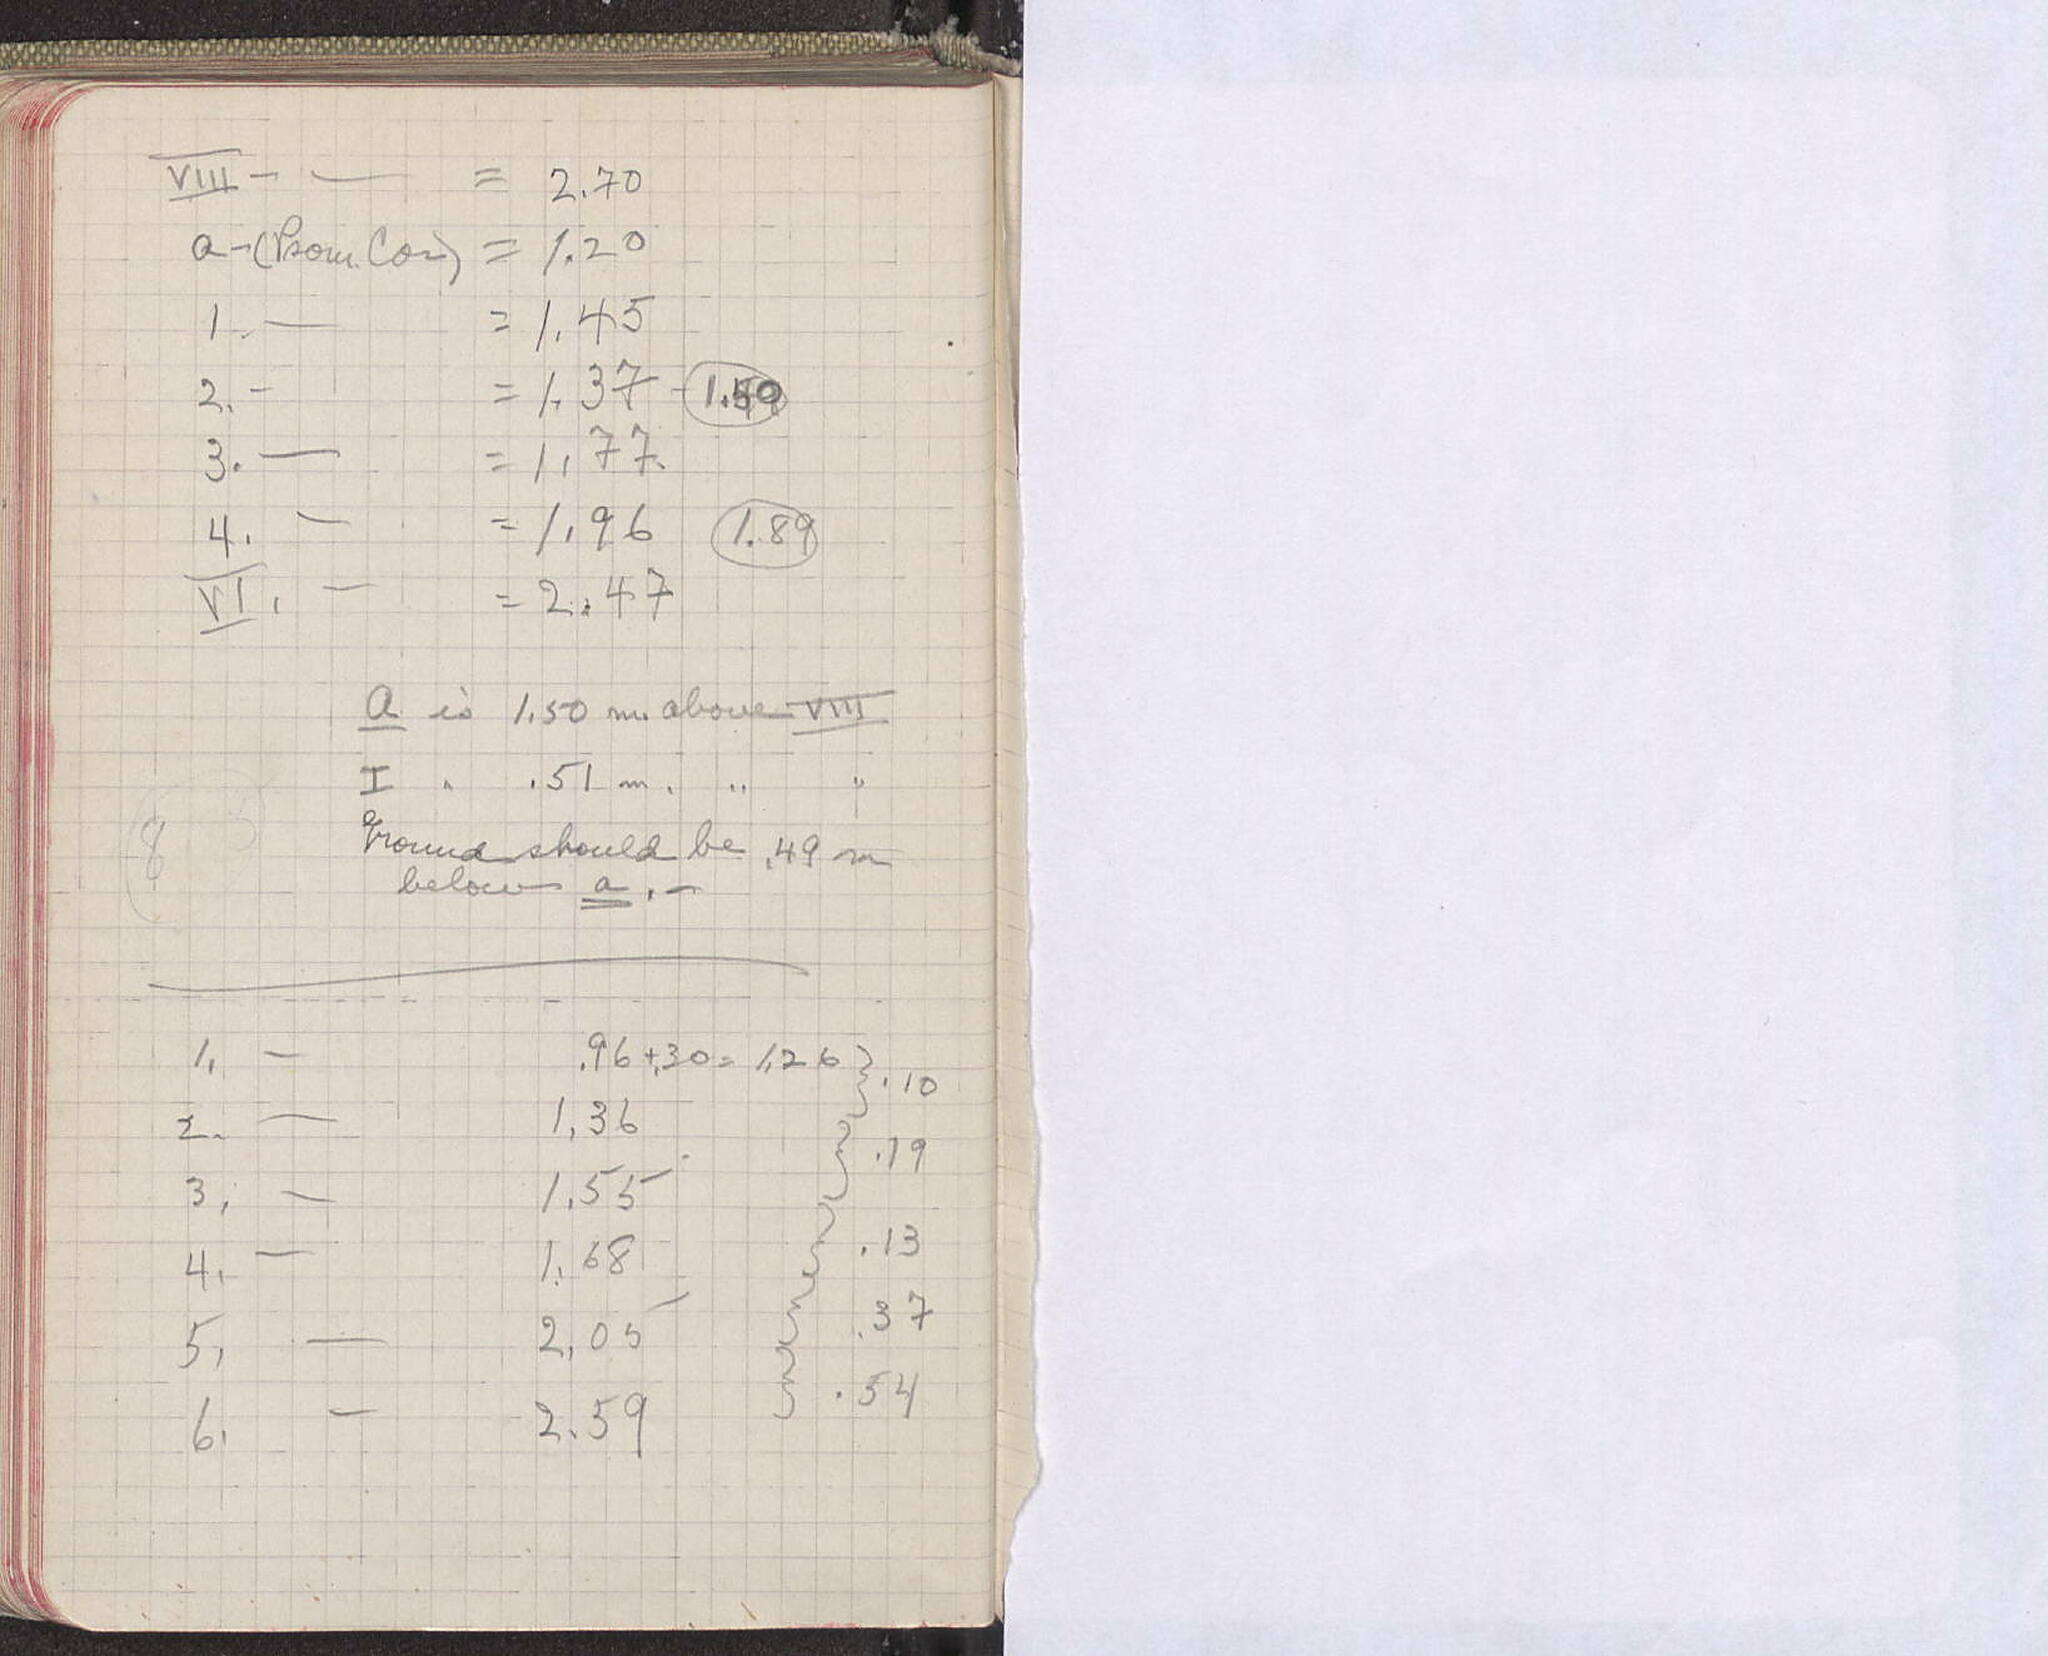 VIII - — = 2.70
a - (Prom. Cor) = 1.20
1. — = 1.45
2. - = 1.37 - 1.50
3. — = 1.77.
4. - = 1.96 1.89
VI. - = 2.47
a is 1.50 m. above VIII
I " .51 m. " "
Ground should be .49 m
below a. -
8
1. - .96 + .30 = 1.26 } .10
2. — 1.36
.19
3. - 1.55
.13
4. - 1.68
.37
5. — 2.05
.54
6. - 2.59